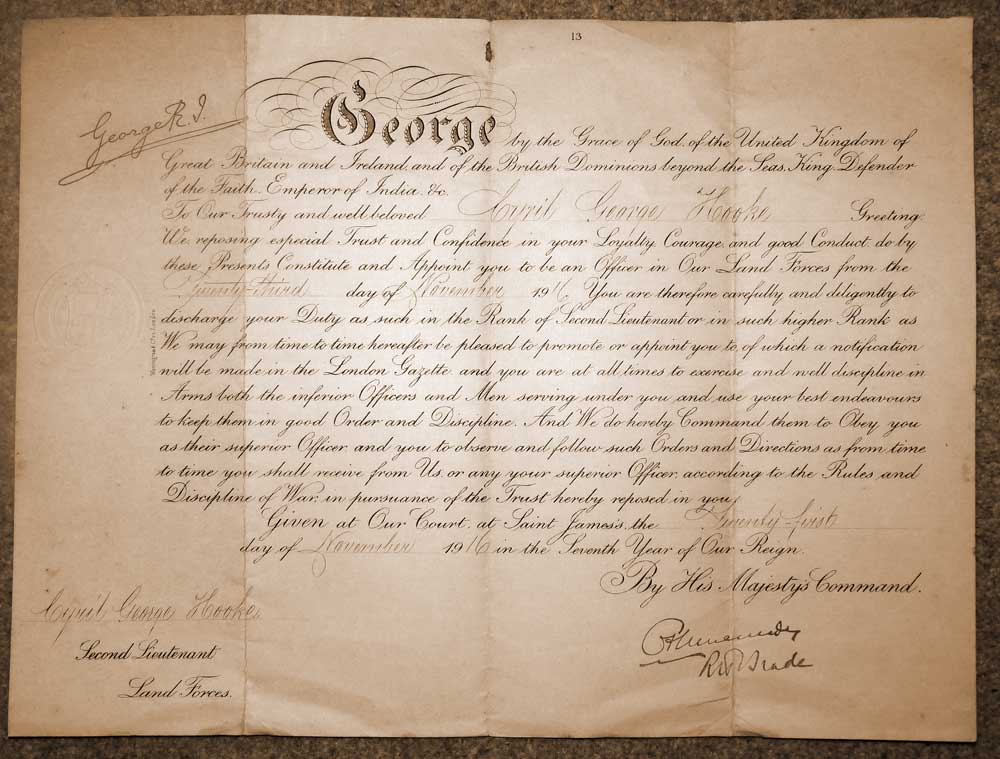 13
George R.I.
George by the Grace of God, of the United Kingdom of
Great Britain and Ireland, and of the British Dominions beyond the Seas, King, Defender
of the Faith, Emperor of India, &c.
To Our Trusty and well beloved Cyril George Hooke Greeting,
We, reposing especial Trust and Confidence in your Loyalty, Courage, and good Conduct, do by
these Presents Constitute and Appoint you to be an Officer in Our Land Forces from the
Twenty-third day of November 1916. You are therefore carefully and diligently to
discharge your Duty as such in the Rank of Second Lieutenant or in such higher Rank as
We may from time to time hereafter be pleased to promote or appoint you to, of which a notification
will be made in the London Gazette, and you are at all times to exercise and well discipline in
Arms both the inferior Officers and Men serving under you and use your best endeavours
to keep them in good Order and Discipline. And We do hereby Command them to Obey you
as their superior Officer, and you to observe and follow such Orders and Directions as from time
to time you shall receive from Us, or any your superior Officer, according to the Rules and
Discipline of War, in pursuance of the Trust hereby reposed in you.
Given at Our Court, at Saint James's, the Twenty-first
day of November 1916 in the Seventh Year of Our Reign.
By His Majesty's Command.
Cyril George Hooke
Second Lieutenant
Land Forces.